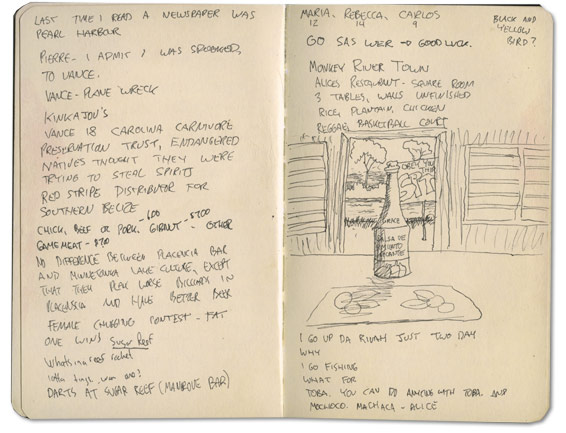 LAST TIME I READ A NEWSPAPER WAS
PEARL HARBOUR
PIERRE- I ADMIT I WAS SPOOKED,
TO VANCE.
VANCE - PLANE WRECK
KINKAJOU'S
VANCE IS CAROLINA CARNIVORE
PRESERVATION TRUST, ENDANGERED
NATIVES THOUGHT THEY WERE
TRYING TO STEAL SPIRITS
RED STRIPE DISTRIBUTOR FOR
SOUTHERN BELIZE
CHICK, BEEF OR PORK, GIBNUT - OTHER
GAME MEAT - $20
NO DIFFERENCE BETWEEN PLACENCIA BAR
AND MINNESOTA LAKE CULTURE, EXCEPT
THAT THEY PLAY WORSE BILLIARDS IN
PLACENCIA AND HAVE BETTER BEER
FEMALE CHUGGING CONTEST - FAT
ONE WINS Sugar Reef
Whats in a reef
DARTS AT SUGAR REEF (MANGROVE BAR)
MARIA, REBECCA, CARLOS
12 14 9
BLACK AND
YELLOW
BIRD?
GO SAS → GOOD LUCK.
MONKEY RIVER TOWN
ALICES RESTAURANT - SQUARE ROOM
3 TABLES, WALLS UNFINISHED
RICE, PLANTAIN, CHICKEN
REGGAE, BASKETBALL COURT
SALSA DE
I GO UP DA RIVAH JUST TWO DAY
WHY
I GO FISHING
WHAT FOR
TOBA. YOU CAN DO ANYTHING WITH TOBA. AND
MACHACA - ALICE